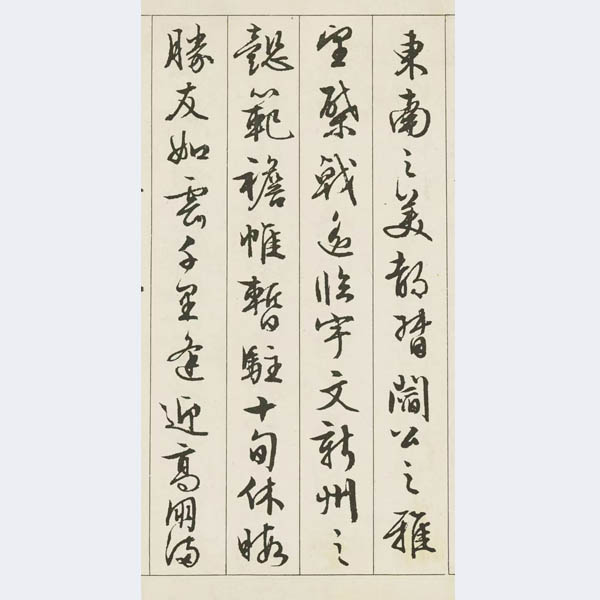 東南之美都督閻公之雅
望棨戟遥临宇文新州之
懿範襜帷暫駐十旬休暇
勝友如雲千里逢迎高朋满